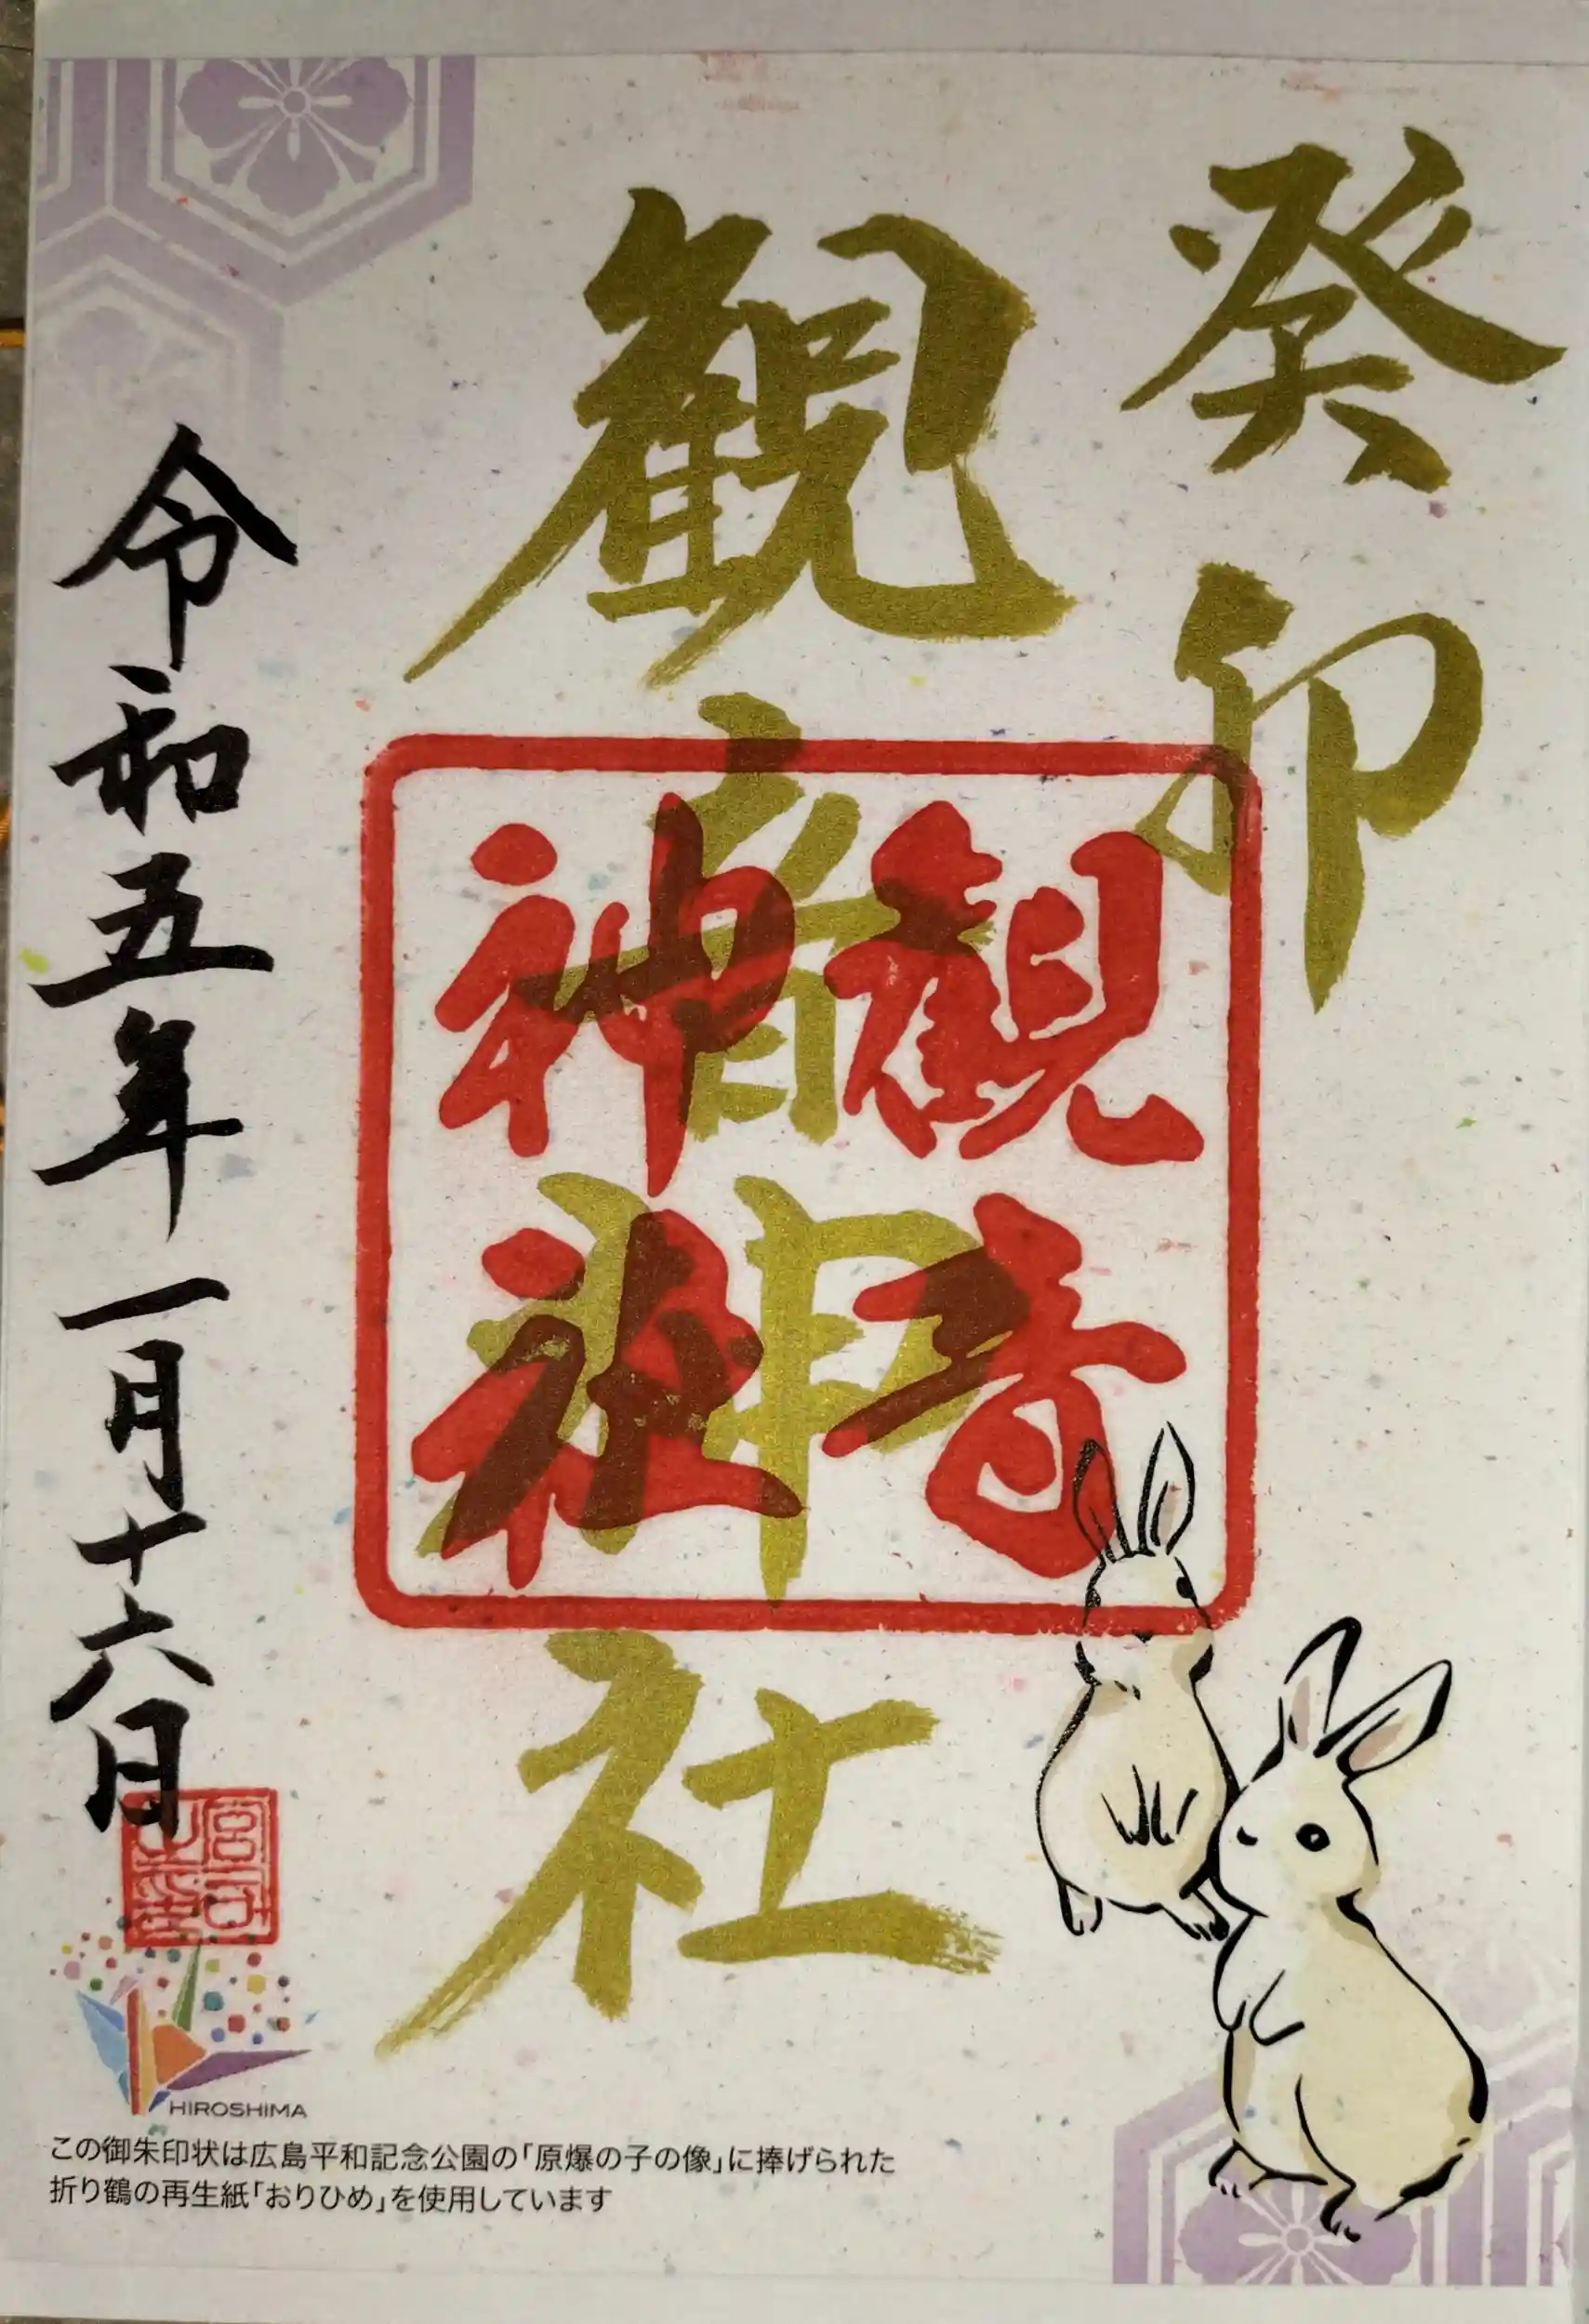 癸卯
観音神社
観音
神社
令和五年一月十六日
HIROSHIMA
この御朱印状は広島平和記念公園の「原爆の子の像」に捧げられた
折り鶴の再生紙「おりひめ」を使用しています